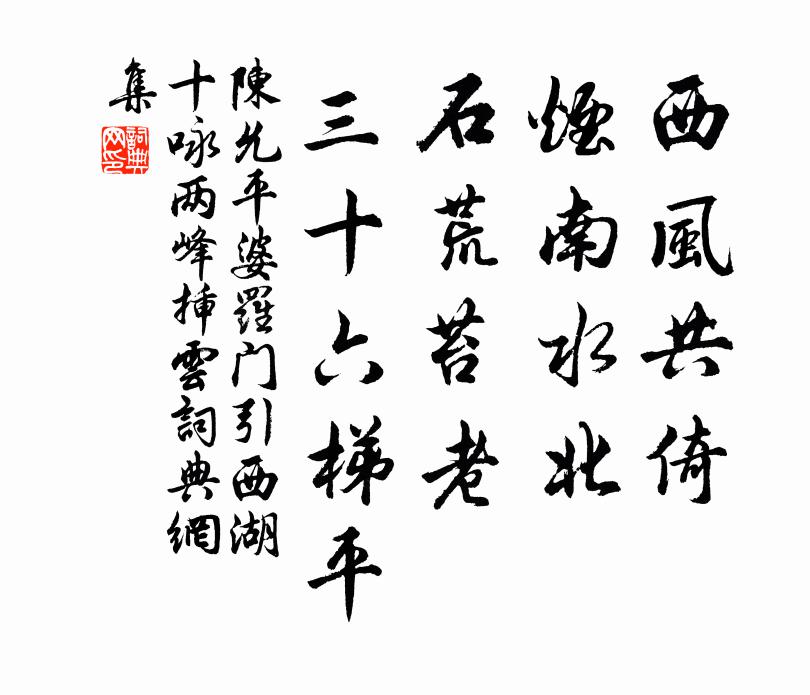 西風共倚
煙南水北
石荒苔老
三十六梯平
陳允平婆羅门引西湖
十咏两峰插雲詞典網
集
詞典
网印